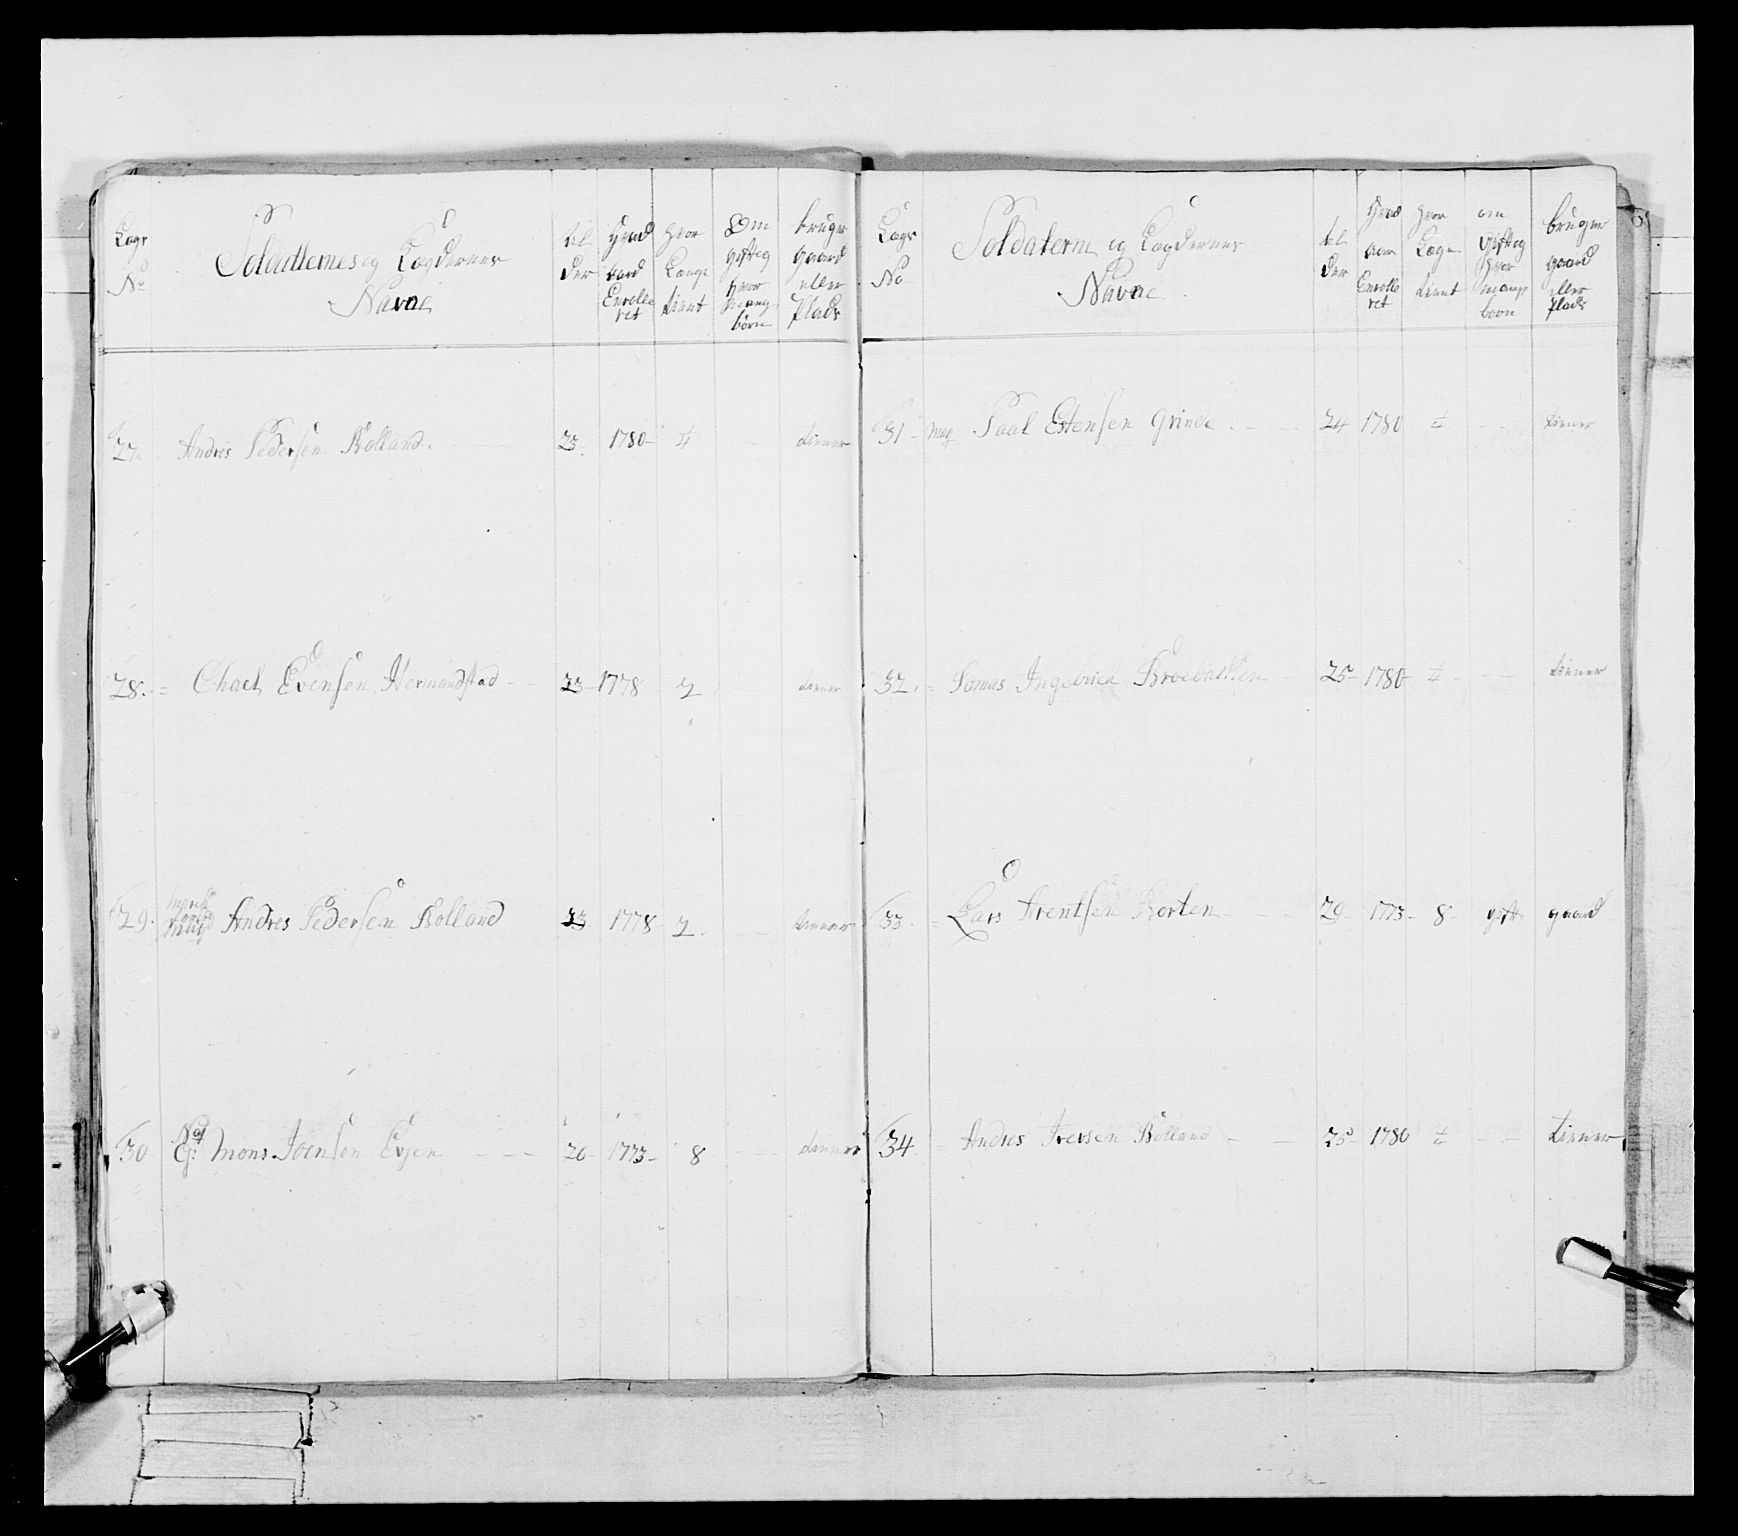 Lægs
No
Soldatternes og Lægdernes
Navne
al
der
Hvad
aard
Enrolle
ret
hvor
Længe
tient
Om
gift og
hvor
mang
börn
bruger
gaard
eller
Plads
27. Andres Pedersen Rolland. 23. 1780 - tiener
28. = Chael Evensen Hermandstad - - 23 - 1778 2 tiener
29. Andres Pedersen Rolland 23 1778 2. - tiener
30 Mons Joensen Evjen - - - 26 - 1773 - 8 - - - tiener
Lægs
No
Soldatern og Lægdernes
Navne
al
der
Hvad
aar
Enrolle
ret
hvor
Læge
tient
om
gift og
hvor
mang
born
bruger
gaard
eller
Plads
31 - Paal Estensen Grinde - - - 24 1780 - - tiener
32. = Tomas Ingebrick - 25 - 1780 - - - tiener
33. = Lars Arentsen Rorten - 29 - 1773 - 8 - gift gaard
34. = Andres Iversen Rolland - - 25 - 1780 - - tiener